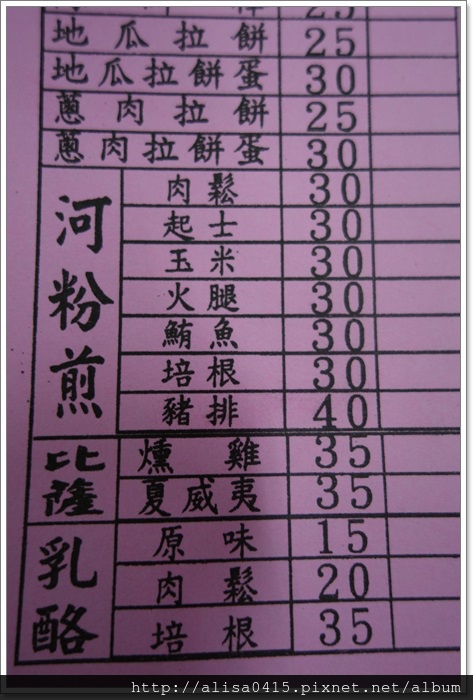 25
地瓜拉餅 25
地瓜拉餅蛋 30
蔥肉拉餅 25
蔥肉拉餅蛋 30
河粉煎
肉鬆 30
起士 30
玉米 30
火腿 30
鮪魚 30
培根 30
豬排 40
比薩
燻雞 35
夏威夷 35
乳酪
原味 15
肉鬆 20
培根 35
http://alisa0415.pixnet.net/album